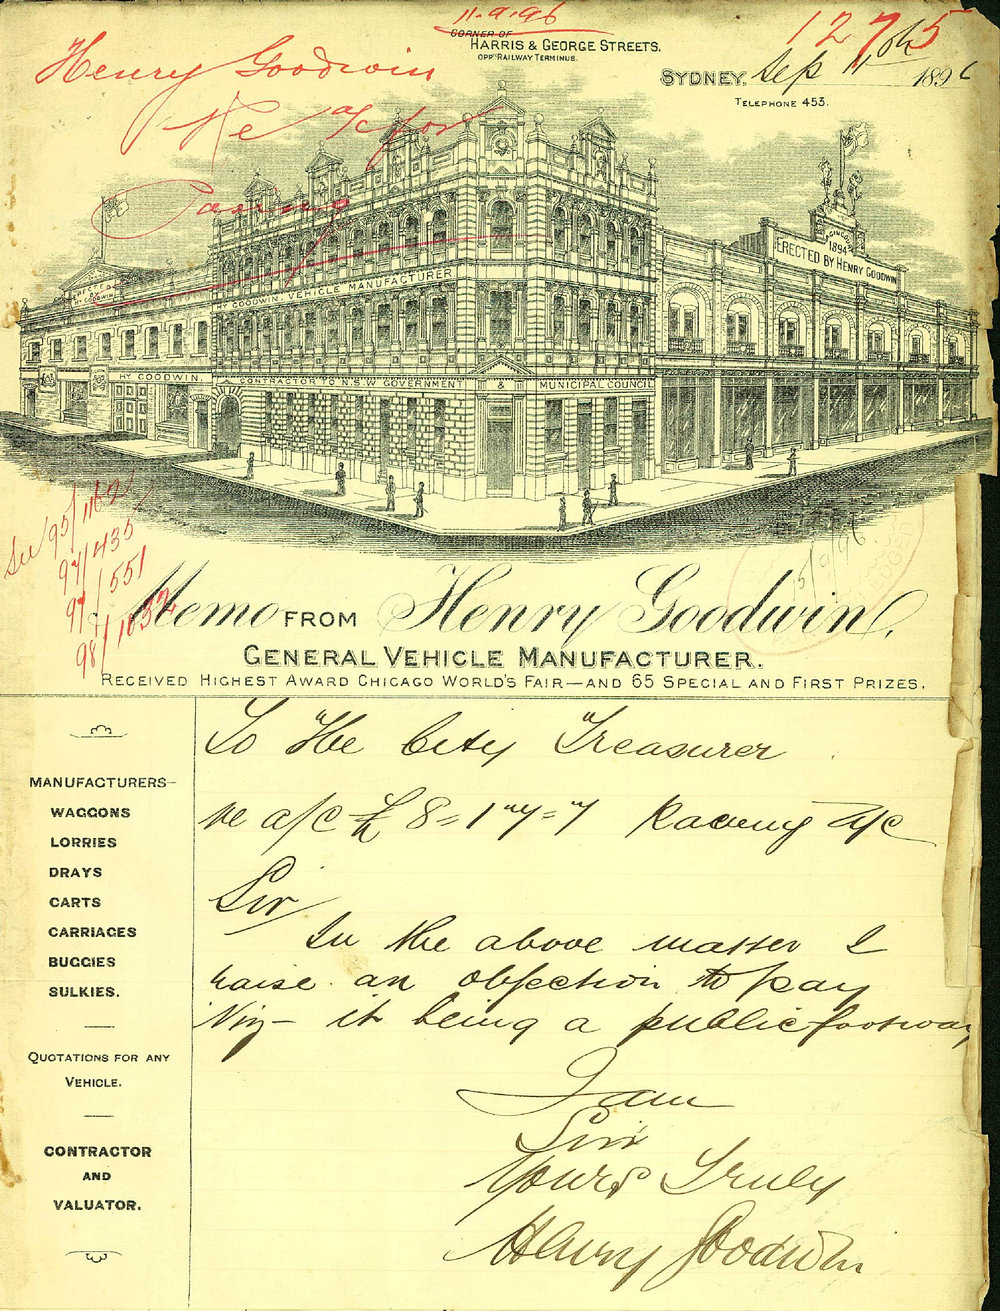 11.9.96
1275
CORNER OF
HARRIS & GEORGE STREETS,
OPPTE RAILWAY TERMINUS.
SYDNEY, Sep 11th 1896
TELEPHONE 453.
Henry Goodwin
Re a/c for
Paving
AGINCOURT
1894
ERECTED BY HENRY GOODWIN
HY GOODWIN. VEHICLE MANUFACTURER
GOODWIN.
CONTRACTOR TO N.S.W GOVERNMENT & MUNICIPAL COUNCIL
See 95/1162
97/435
97/551
98/1032
15/9/96
Memo FROM Henry Goodwin,
GENERAL VEHICLE MANUFACTURER.
RECEIVED HIGHEST AWARD CHICAGO WORLD'S FAIR—AND 65 SPECIAL AND FIRST PRIZES.
MANUFACTURERS—
WAGGONS
LORRIES
DRAYS
CARTS
CARRIAGES
BUGGIES
SULKIES.
QUOTATIONS FOR ANY
VEHICLE.
CONTRACTOR
AND
VALUATOR.
To The City Treasurer
re a/c £8=1"=7 Paving A/C
Sir
In the above matter I
raise an objection to pay
Viz— it being a public footway
I am
Sir
Yours Truly
Henry Goodwin